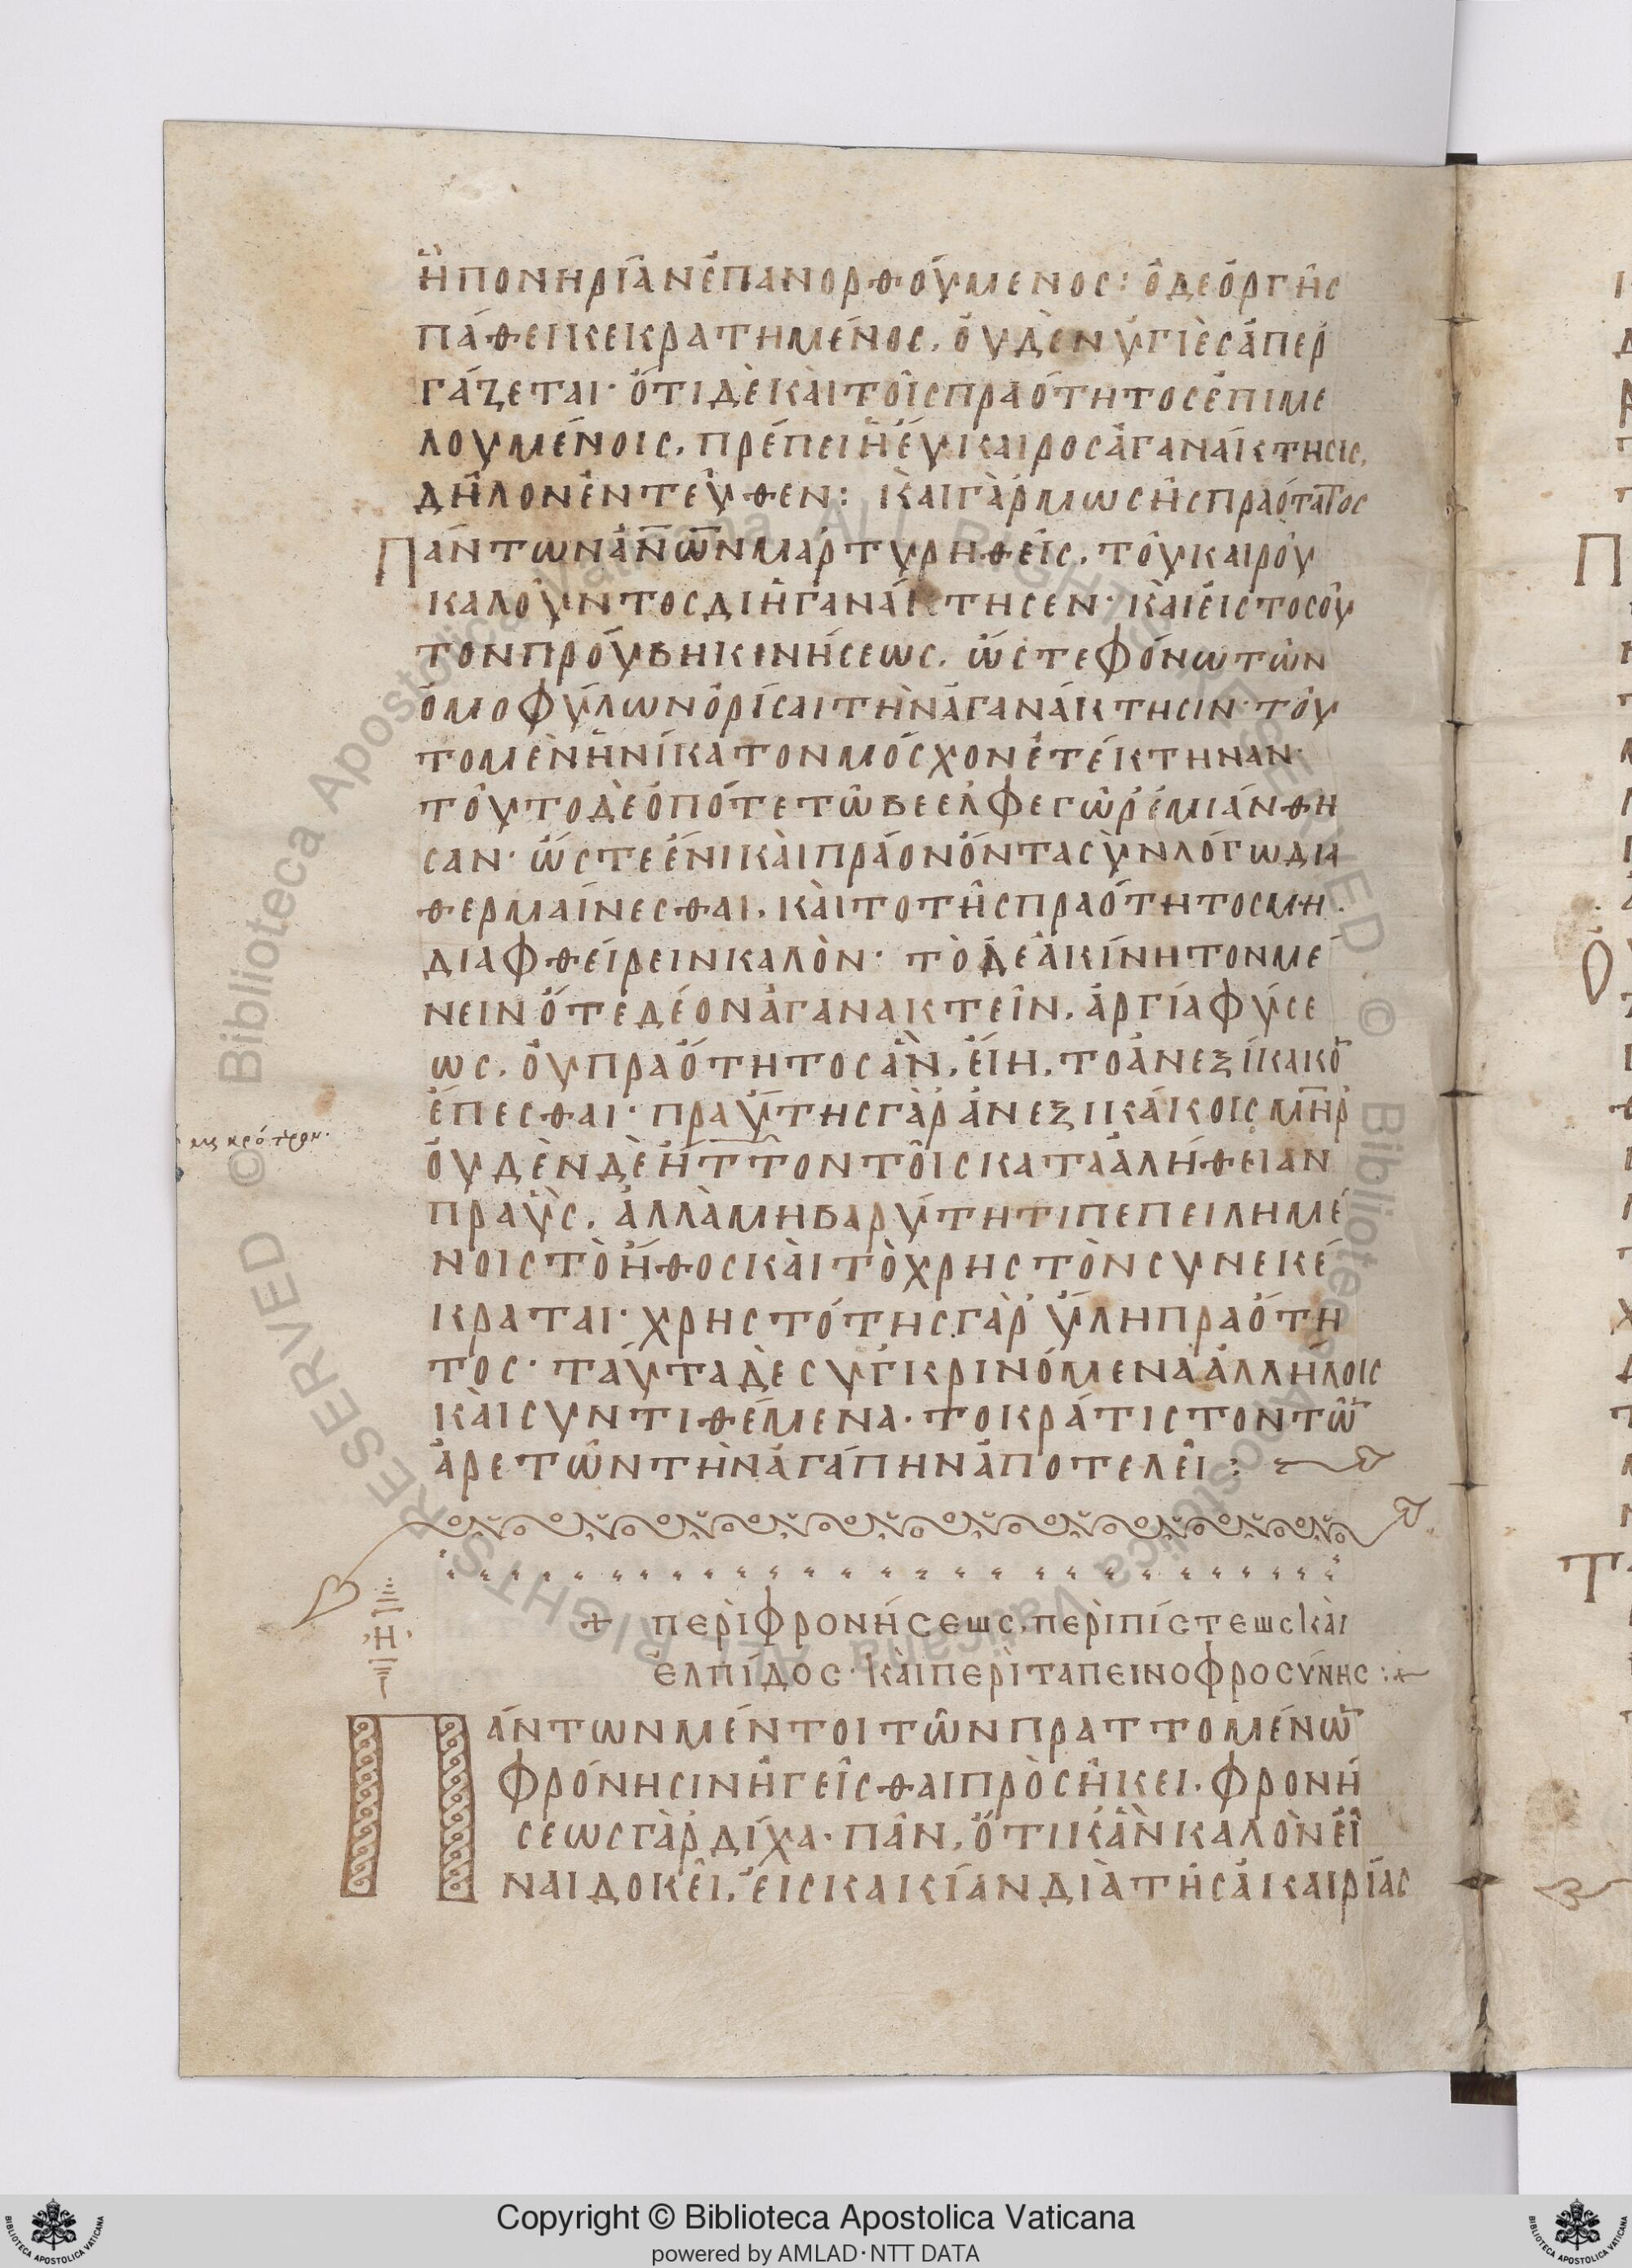 ἢ πονηρίαν ἐπανορθούμενος: ὁ δε ὀργῆς
πάθει κεκρατημένος, οὐδὲν ὑγιὲς ἀπερ
γάζεται· ὅτι δὲ καὶ τοῖς πραότητος ἐπιμε
λουμένοις, πρέπει ἡ εὔκαιρος ἀγανάκτησις,
δῆλον ἐντεῦθεν: καὶ γὰρ μωσῆς πραότατος
Πάντων ἀν̅ω̅ν μαρτυρηθεὶς, τοῦ καιροῦ
καλοῦντος διηγανάκτησεν· καὶ εἰς τοσοῦ
τον προύβη κινήσεως, ὥστε φόνω τῶν
ὁμοφύλων ὁρίσαι τὴν ἀγανάκτησιν· τοῦ
το μὲν ἡνίκα τον μόσχον ἐτέκτηναν·
τοῦτο δὲ ὁπότε τῶ βεελφεγὼρ ἐμιάνθη
σαν· ὥστε ἔνι καὶ πράον ὄντα σὺν λόγω δια
θερμαίνεσθαι, καὶ το τῆς πραότητος μη
διαφθείρειν καλὸν· τὸ δε ἀκίνητον μέ
νειν ὅτε δέον ἀγανακτεῖν, ἀργία φύσε
ως, οὐ πραότητος ἂν, εἴη, το ἀνεξίκακο̅
ἕπεσθαι· πραΰτης γὰρ ἀνεξικάκοις μ̅η̅ρ
οὐδὲν δὲ ἧττον τοῖς κατα ἀλήθειαν
πραῢς, ἀλλὰ μη βαρύτητι πεπειλημέ
νοις τὸ ἦθος καὶ τὸ χρηστὸν συνεκέ
κραται· χρηστότης γὰρ ὕλη πραότη
τος· ταύτα δὲ συγκρινόμενα ἀλλήλοις
καὶ συντιθέμενα· το κράτιστον τῶ̅
ἀρετῶν τὴν ἀγάπην ἀποτελεῖ :
·Η·
+ περὶ φρονήσεως, περὶ πίστεως καὶ
ἐλπίδος· καὶ περὶ ταπεινοφροσύνης :
Πάντων μέντοι τῶν πραττομένω̅
φρόνησιν ἡγεῖσθαι πρὸσῆκει, φρονή
σεως γὰρ δίχα· πᾶν, ὅτι κἂν καλὸν εἶ
ναι δοκεῖ, εἰς κακίαν διὰ τῆς ἀκαιρίας
Copyright © Biblioteca Apostolica Vaticana
powered by AMLAD·NTT DATA